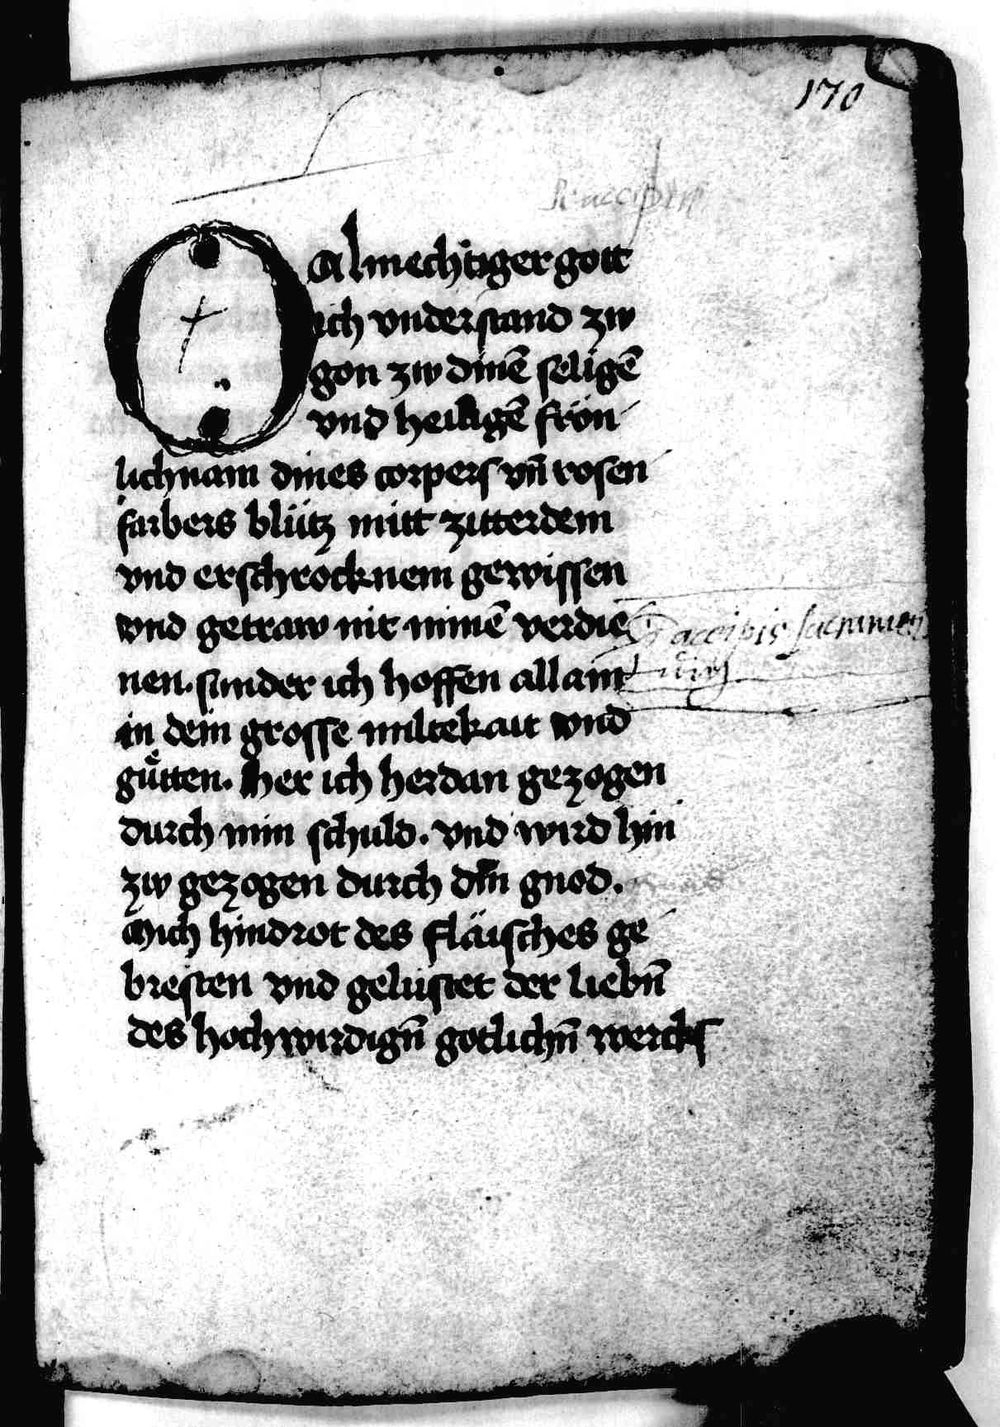 170
O Almechtiger gott
ich vnderstand zw
gon zw dinē seligē
vnd heiligē frön
lichnam dines corpers vn̄ rosen
farbers blütz mitt zitterdem
vnd erschrocknem gewissen
vnd getraw nit minē verdie
accipis sacramen
nen. sunder ich hoffen allain
in dem grosse miltekait vnd
gůtten. her ich herdan gezogen
durch min schuld. vnd wird hin
zw gezogen durch din gnod.
Mich hindrot des fläisches ge
bresten vnd gelüstet der liebn̄
des hochwirdign̄ gotlichn̄ wercks